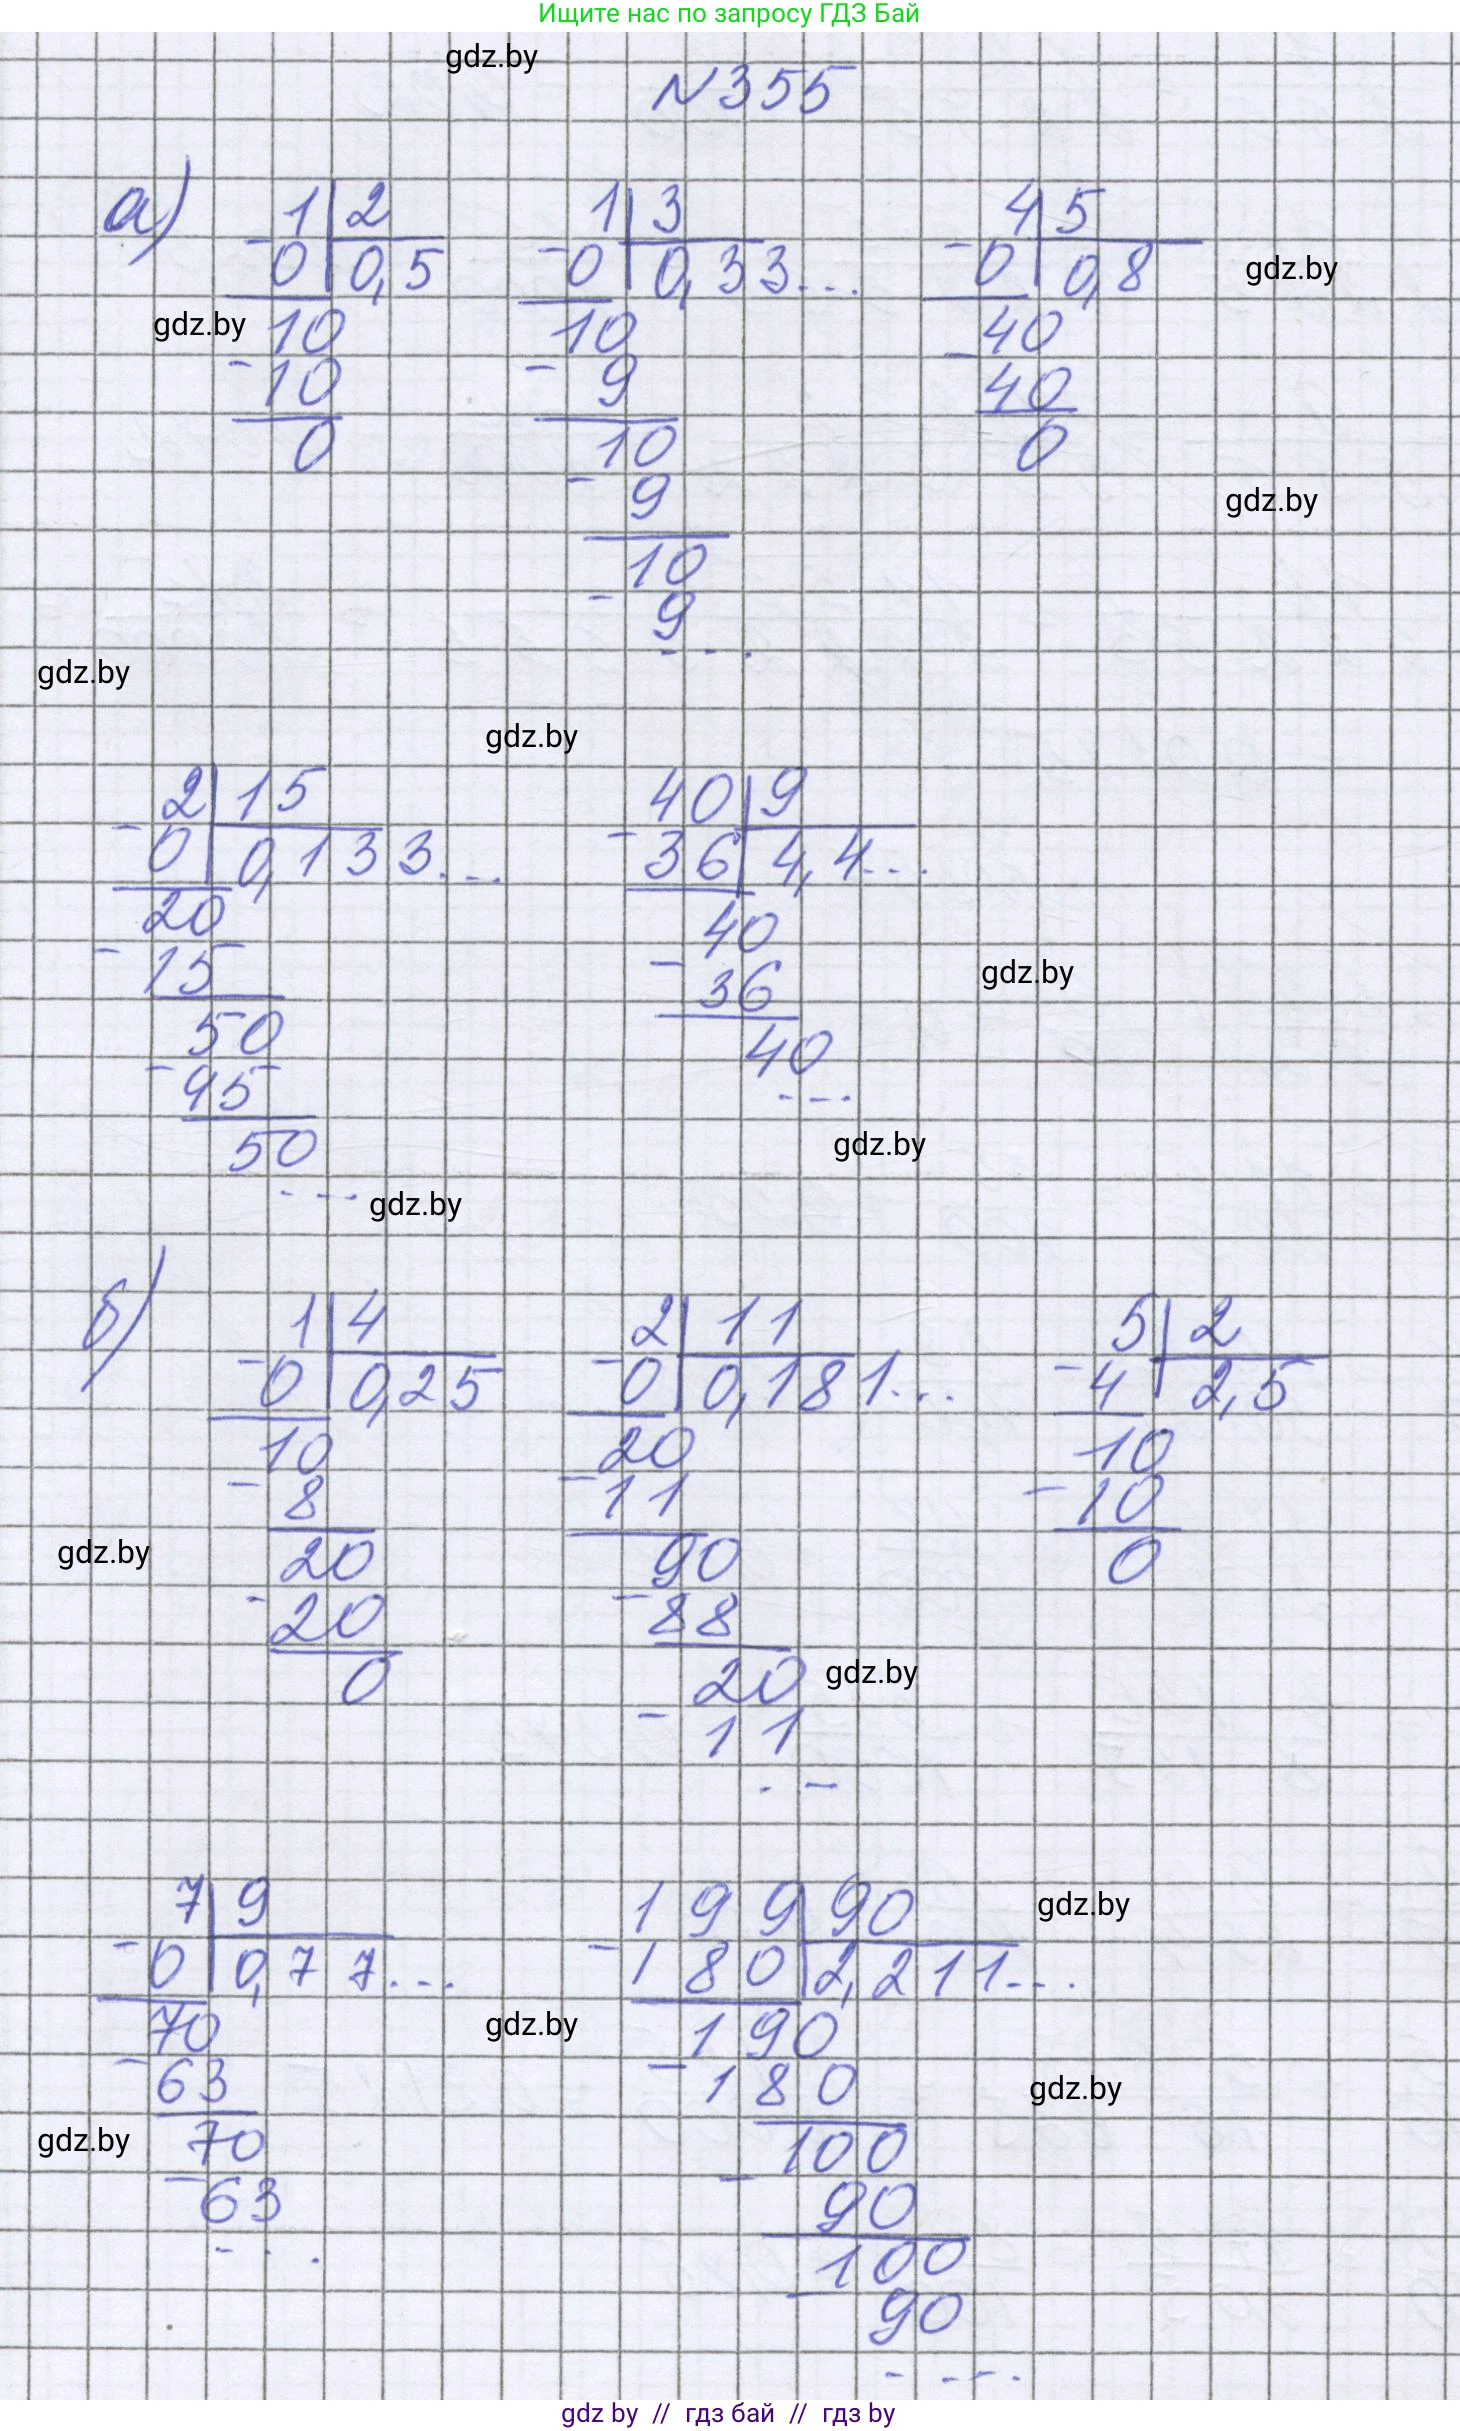 Ищите нас по запросу ГДЗ Бай
gdz.by
№355
а) 1 | 2   1 | 3   4 | 5
- 0 | 0,5   - 0 | 0,33...   - 0 | 0,8
gdz.by
gdz.by
10   10   40
- 10   - 9   - 40
0   10   0
- 9
gdz.by
10
- 9
...
gdz.by
gdz.by
2 | 15   40 | 9
- 0 | 0,133...   - 36 | 4,4...
20   40
- 15   - 36
gdz.by
50   40
- 45   ...
50
gdz.by
...
gdz.by
б) 1 | 4   2 | 11   5 | 2
- 0 | 0,25   - 0 | 0,181...   - 4 | 2,5
10   20   10
- 8   - 11   - 10
gdz.by
20   90   0
- 20   - 88
0   20
gdz.by
- 11
...
7 | 9   199 | 90
gdz.by
- 0 | 0,77...   - 180 | 2,211...
70   190
gdz.by
- 63   - 180
gdz.by
70   100
gdz.by
- 63   - 90
...   100
- 90
...
gdz by // гдз бай // гдз by